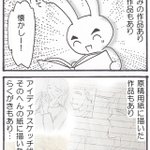 みの作品あり
作品もあり
懐かしー!
原稿用紙に描いた
作品もあり
アイディアスケッチや
そのへんの紙に描いた
らくがきもあり!